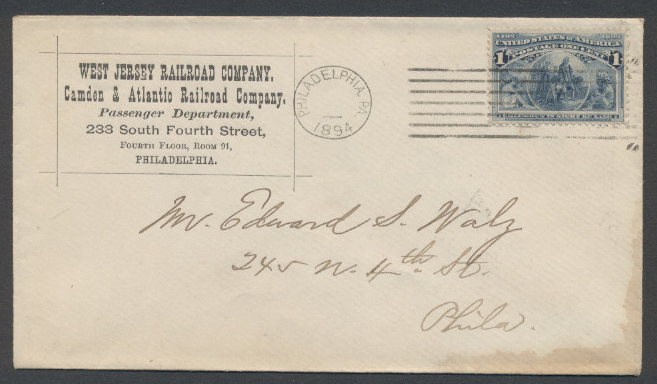 WEST JERSEY RAILROAD COMPANY.
Camden & Atlantic Railroad Company.
Passenger Department,
233 South Fourth Street,
FOURTH FLOOR, ROOM 91,
PHILADELPHIA.
PHILADELPHIA, PA.
1894
UNITED STATES OF AMERICA
POSTAGE ONE CENT
1 1
COLUMBUS IN SIGHT OF LAND
Mr. Edward S. Walz
245 N. 4th St.
Phila.